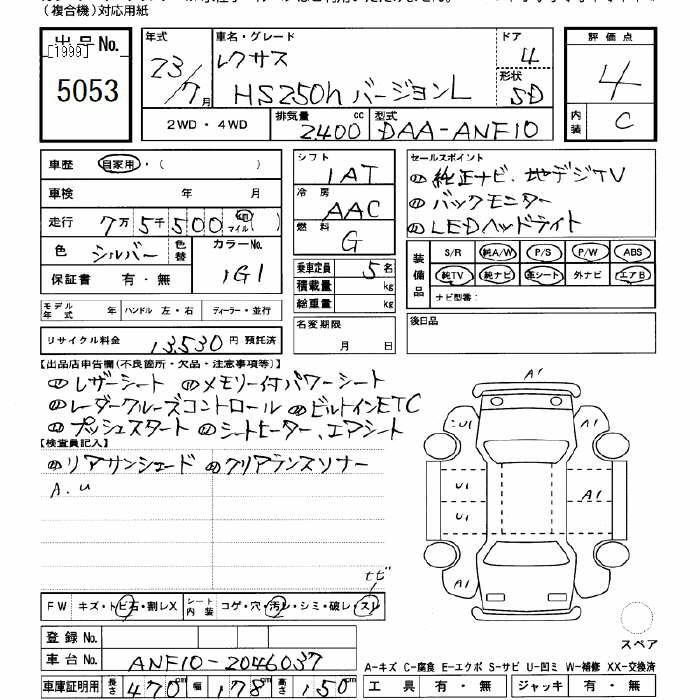 （複合機）対応用紙
出品No.
[1999]
5053
年式 23/7月
車名・グレード
レクサス
HS250h バージョンL
ドア 4
形状 SD
評価点
4
内装 C
2WD・4WD 排気量 2400 cc 型式 DAA-ANF10
車歴 自家用・（ ）
車検 年 月
走行 7万5千500 km マイル（ ）
色 シルバー 色替 カラーNo. 1G1
保証書 有・無
シフト 1AT
冷房 AAC
燃料 G
乗車定員 5名
積載量 kg
総重量 kg
セールスポイント
の純正ナビ、地デジTV
のバックモニター
のLEDヘッドライト
装備品 S/R 純A/W P/S P/W ABS
純TV 純ナビ 革シート 外ナビ エアB
ナビ型番：
モデル年式 年 ハンドル 左・右 ディーラー・並行
リサイクル料金 13,530円 預託済
名変期限 月 日
後日品
【出品店申告欄（不良箇所・欠品・注意事項等）】
のレザーシート のメモリー付パワーシート
のレーダークルーズコントロール のビルトインETC
のプッシュスタート のシートヒーター、エアシート
【検査員記入】
のリアサンシェード のクリアランスソナー
A.U
A1
U1 A1
U1 A1
U1
A1
トビ
FW キズ・トビ石・割レX シート内装 コゲ・穴・汚レ・シミ・破レ・スレ
スペア
登録No.
車台No. ANF10-2046037
A-キズ C-腐食 E-エクボ S-サビ U-凹ミ W-補修 XX-交換済
車庫証明用 長さ 470cm 幅 178cm 高さ 150cm
工具 有・無 ジャッキ 有・無